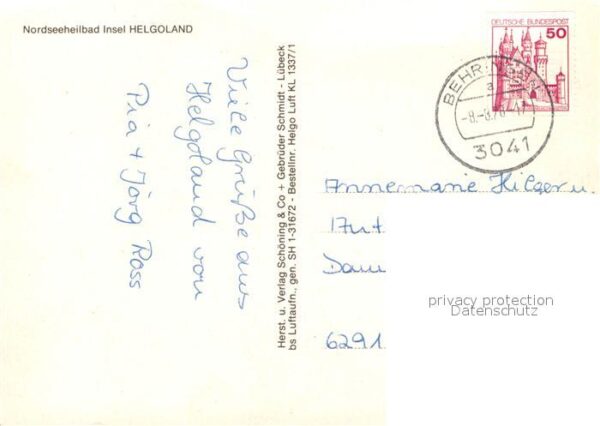 Nordseeheilbad Insel HELGOLAND
Viele Grüße aus
Helgoland von
Pia + Jörg Ross
Herst. u. Verlag Schöning & Co + Gebrüder Schmidt - Lübeck
bs Luftaufn., gen. SH 1-31672 - Bestellnr. Helgo Luft KL 1337/1
DEUTSCHE BUNDESPOST
50
a
3041
Annemarie Hilger u.
Dam
6291
privacy protection
Datenschutz